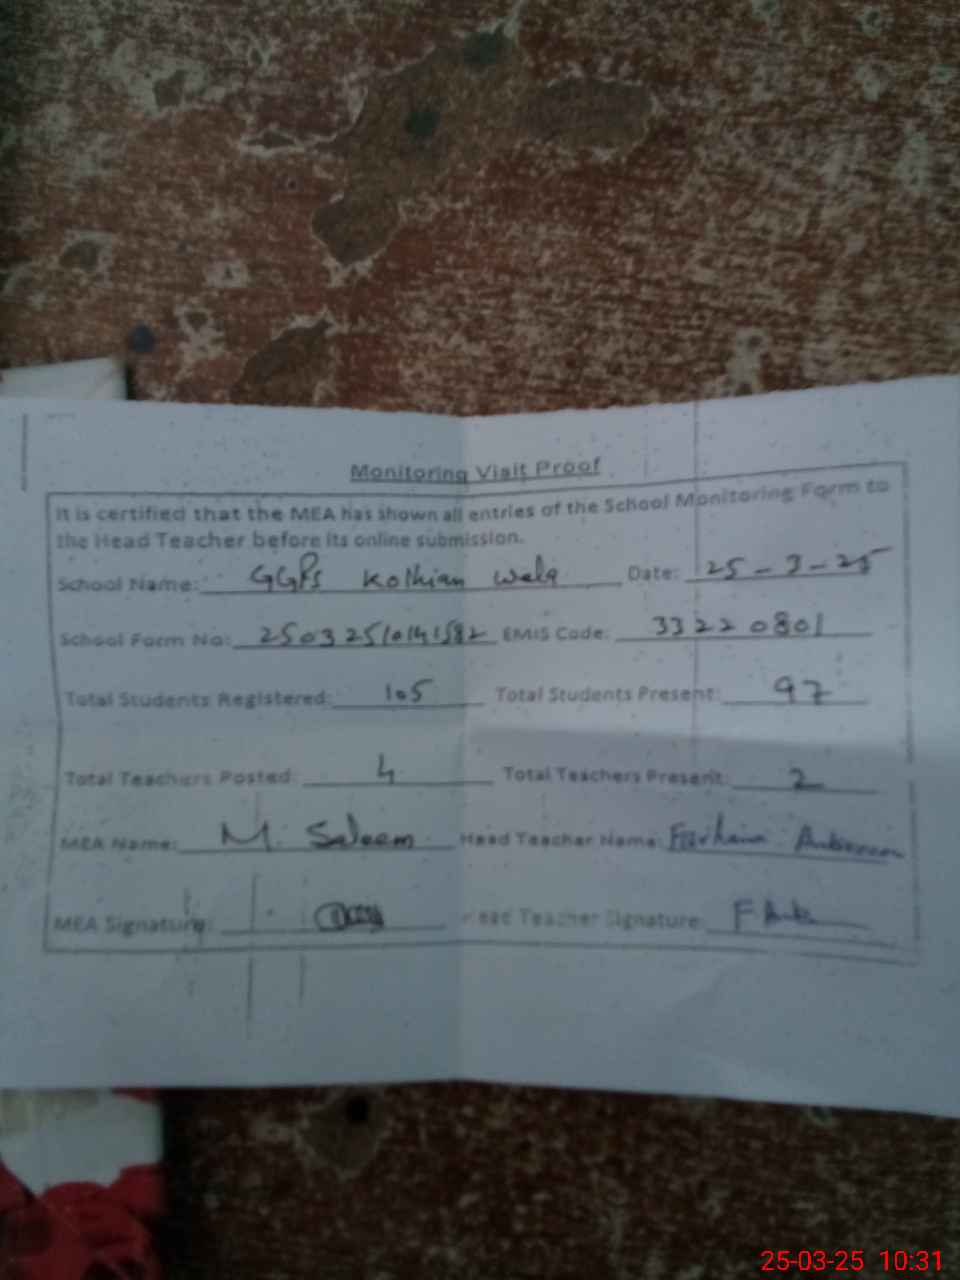 Monitoring Visit Proof
It is certified that the MEA has shown all entries of the School Monitoring Form to
the Head Teacher before its online submission.
School Name: GGPS Kothian wala Date: 25-3-25
School Form No: 25032510141582 EMIS Code: 33220801
Total Students Registered: 105 Total Students Present: 97
Total Teachers Posted: 4 Total Teachers Present: 2
MEA Name: M. Saleem Head Teacher Name:
MEA Signature: Head Teacher Signature:
25-03-25 10:31